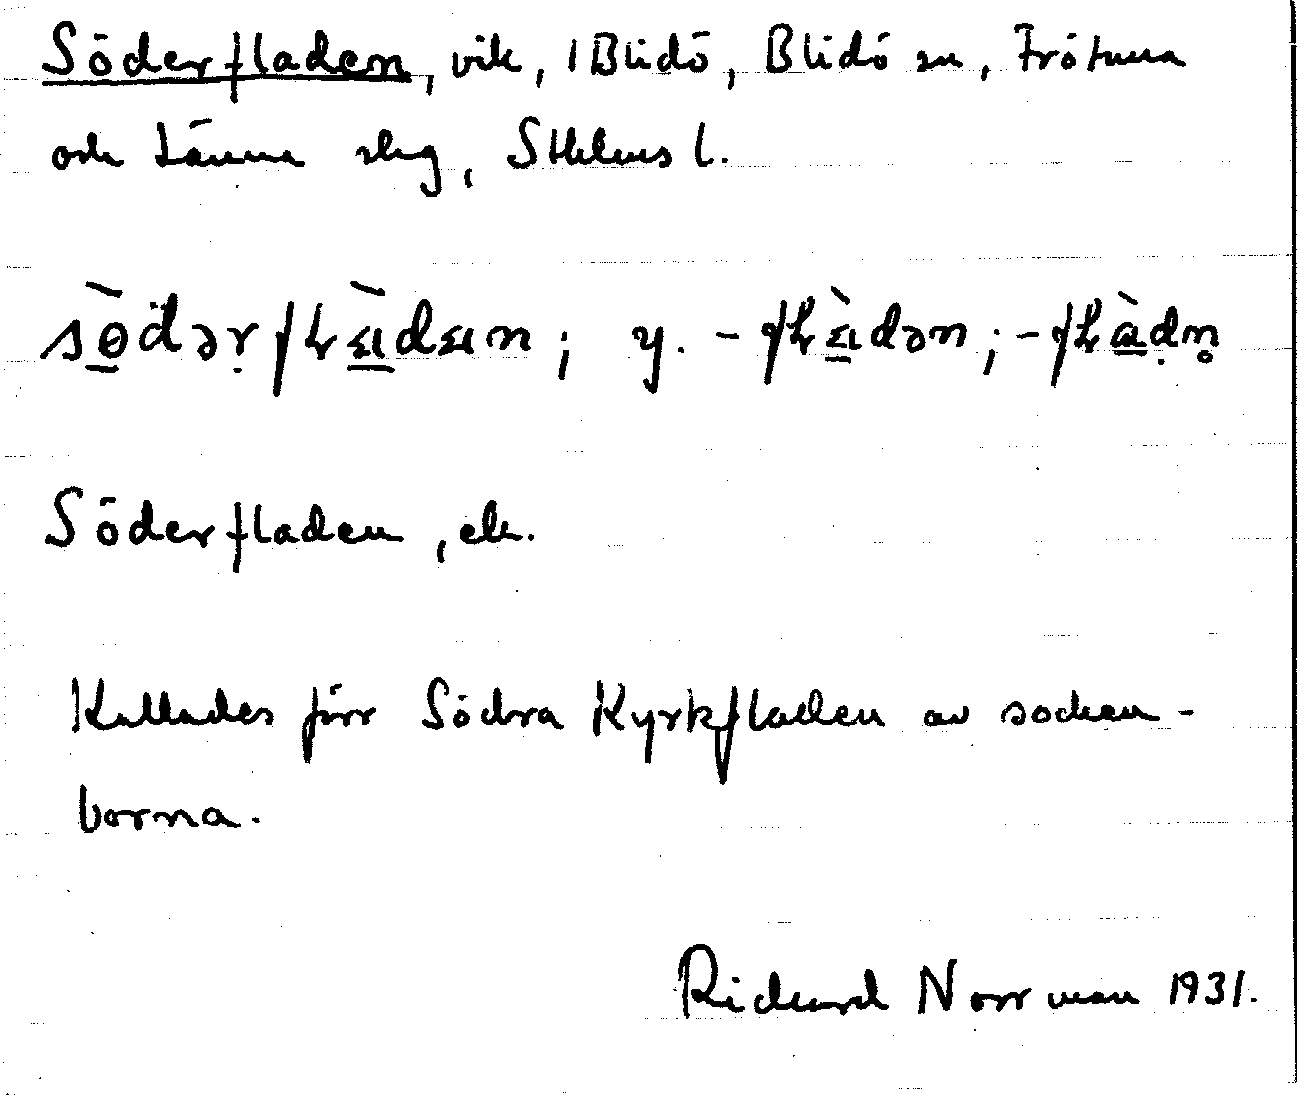 Söderfladen, vik, i Blidö, Blidö sn, Frötuna
och Länna slg, Sthlms l.
sɵ̀dər̥fƚàdan; y. -fƚàdən; -fƚàdn̥
Söderfladen, ek.
Kallades förr Södra Kyrkfladen av socken-
borna.
Rickard Norrman 1931.